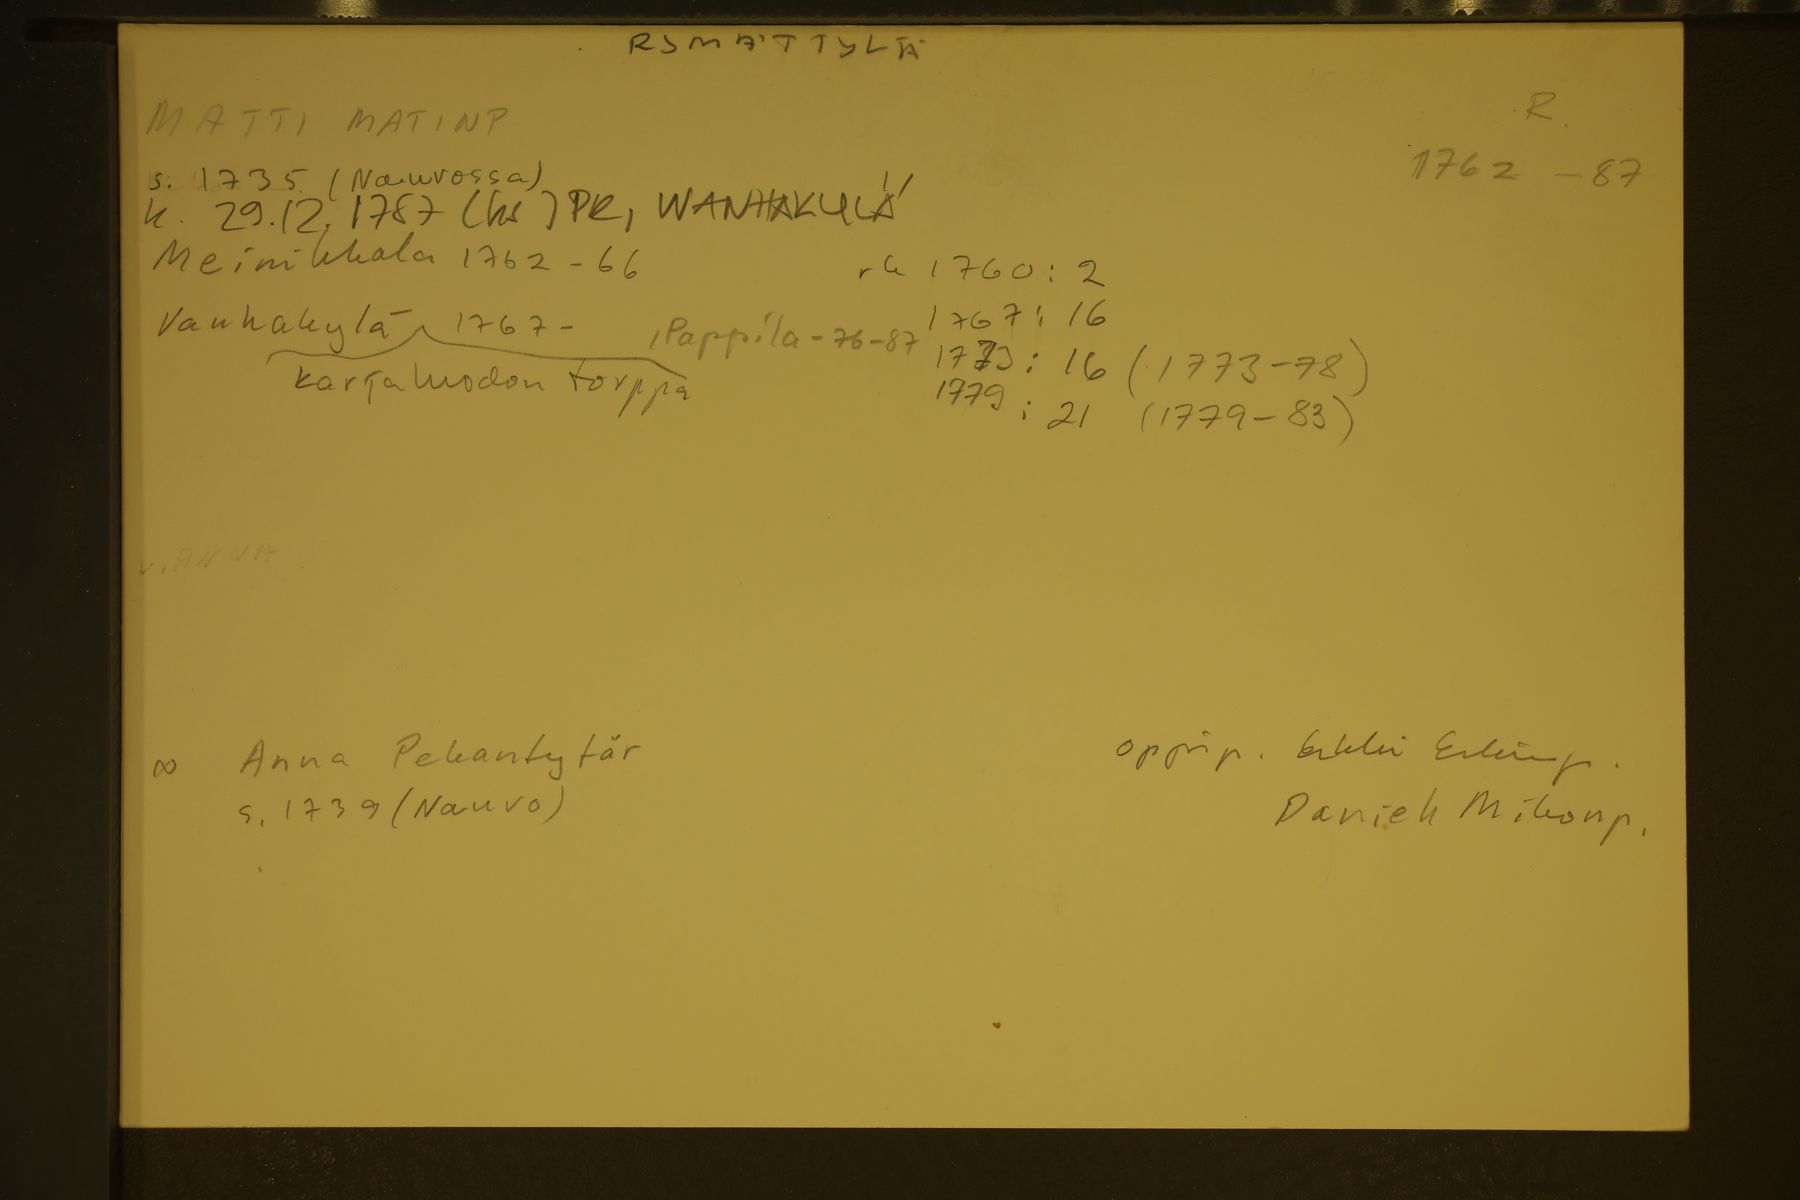 RYMÄTTYLÄ
MATTI MATINP
R.
1762 - 87
s. 1735 (Nauvossa)
k. 29.12.1787 (hs) PR, WANHAKYLÄ
Meinikkala 1762 - 66
rk 1760 : 2
Vanhakylä 1767 -
, Pappila - 76 - 87
1767 : 16
1773 : 16 (1773-78)
Karjaluodon torppa
1779 : 21 (1779-83)
v. ANNA
∞ Anna Pekantytär
s. 1739 (Nauvo)
oppip. Erkki Erkinp.
Daniel Mikonp.